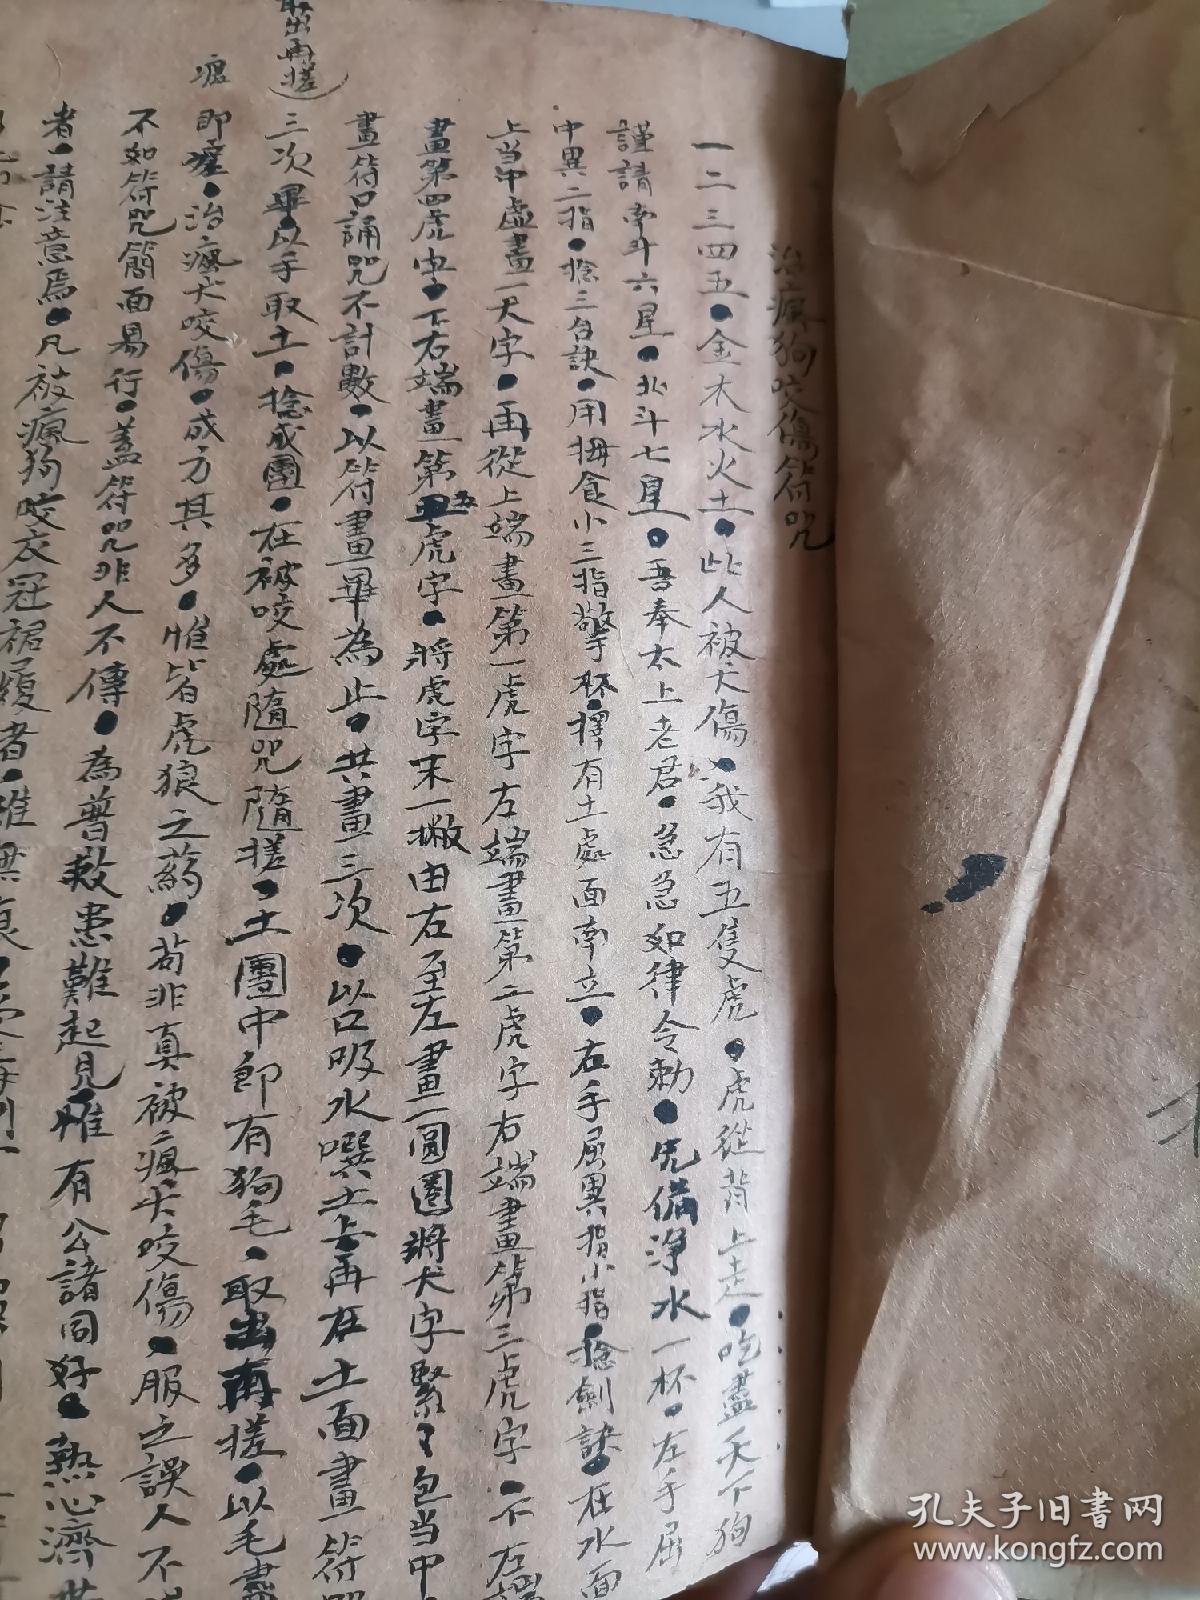 治瘋狗咬傷符咒
一二三四五●金木水火土●此人被犬傷●我有五隻虎●虎從背上走●吃盡天下狗
謹請南斗六星●北斗七星●吾奉太上老君●急急如律令勅●先備淨水一杯●左手屈
中異二指●捻三台訣●用拇食小三指擎杯●擇有土處面南立●右手屈異指小指●捻劍訣●在水面
上當中虛畫一犬字●再從上端畫第一虎字左端畫第二虎字右端畫第三虎字●下左端
畫第四虎字●下右端畫第五虎字●將虎字末一撇由右至左畫一圓圈將犬字緊〻包當中●
畫符口誦咒不計數●以符畫畢為止●共畫三次●以口吸水噀土上●再在土面畫符咒
三次畢●以手取土●捻成團●在被咬處隨咒隨搓●土團中即有狗毛●取出再搓●以毛盡
取出再搓
即瘥●治瘋犬咬傷●成方其多●惟皆虎狼之藥●苟非真被瘋犬咬傷●服之誤人不
不如符咒簡而易行●蓋符咒非人不傳●為普救患難起見惟有公諸同好●熱心濟世
者●請注意焉●凡被瘋狗咬衣冠裙履者●雖無
孔夫子旧书网
www.kongfz.com